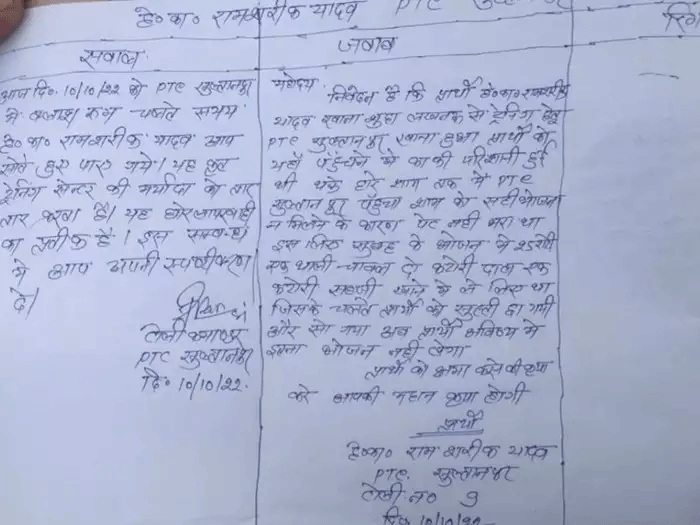 हे० का० रामशरीक यादव PTC सुल्तानपुर
सवाल
जवाब
आज दि० 10/10/22 को PTC सुल्तानपुर
में क्लास रूम चलते समय
हे० का० रामशरीक यादव आप
सोते हुए पाए गये। यह कृत
ट्रेनिंग सेन्टर की मर्यादा को तार
तार करता है। यह घोर लापरवाही
का प्रतीक है। इस सम्बन्ध
में आप अपनी स्पष्टीकरण
दे।
टोली कमाण्डर
PTC सुल्तानपुर
दि० 10/10/22.
महोदय
निवेदन है कि प्रार्थी हे० का० रामशरीक
यादव रवाना शुदा लखनऊ से ट्रेनिंग हेतु
PTC सुल्तानपुर रवाना हुआ प्रार्थी को
यहाँ पहुँचने में काफी परेशानी हुई
थी थके हारे शाम तक मैं PTC
सुल्तानपुर पहुँचा शाम को सही भोजन
न मिलने के कारण पेट नही भरा था
इस लिए सुबह के भोजन में 25 रोटी
एक थाली चावल दो कटोरी दाल एक
कटोरी सब्जी खाने में ले लिए था
जिसके चलते प्रार्थी को सुस्ती छा गयी
और सो गया अब प्रार्थी भविष्य में
इतना भोजन नही लेगा
प्रार्थी को क्षमा करने की कृपा
करे आपकी महान कृपा होगी
प्रार्थी
हे० का० राम शरीक यादव
PTC. सुल्तानपुर
टोली न० 9
दि० 10/10/22